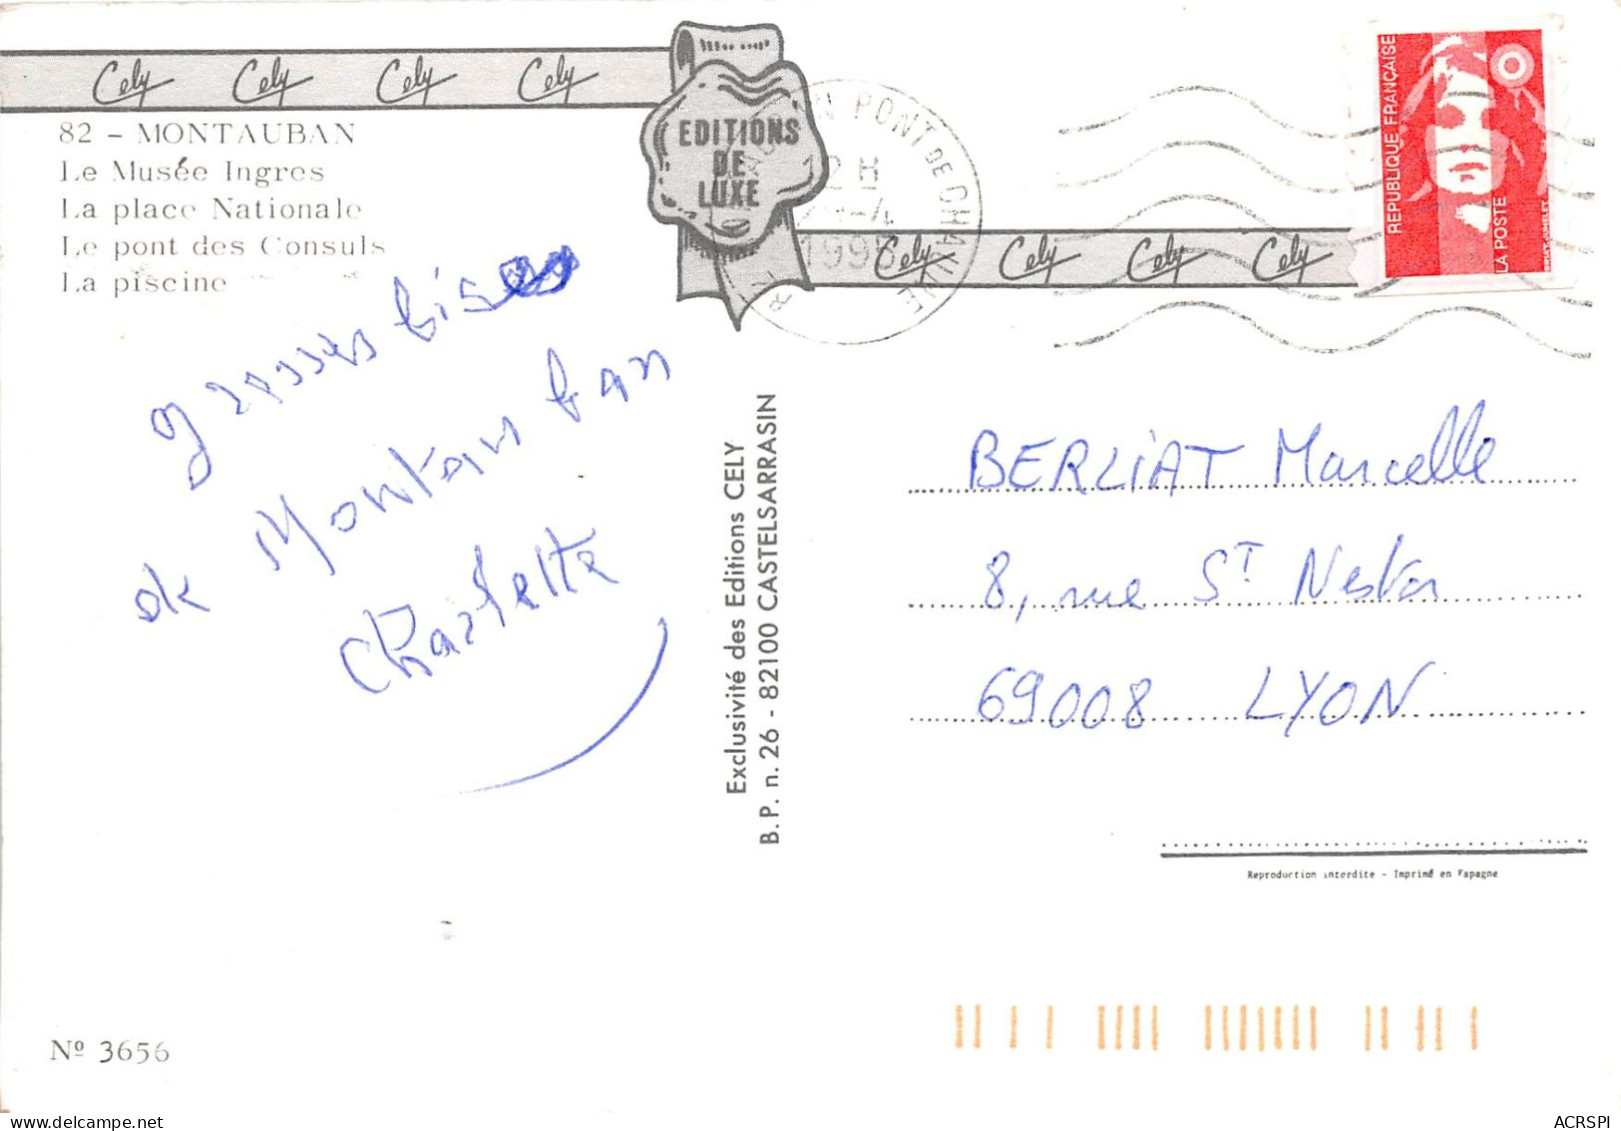 Cely Cely Cely Cely
82 - MONTAUBAN
Le Musée Ingres
La place Nationale
Le pont des Consuls
La piscine
EDITIONS
DE
LUXE
PONT DE CHAUME
1995
Cely Cely Cely Cely
REPUBLIQUE FRANÇAISE
LA POSTE
grosses bises
de Montauban
Charlette
Exclusivité des Editions CELY
B.P. n. 26 - 82100 CASTELSARRASIN
BERLIAT Marcelle
8, rue ST Nestor
69008 LYON
Reproduction interdite - Imprimé en Espagne
Nº 3656
delcampe.net
ACRSPI